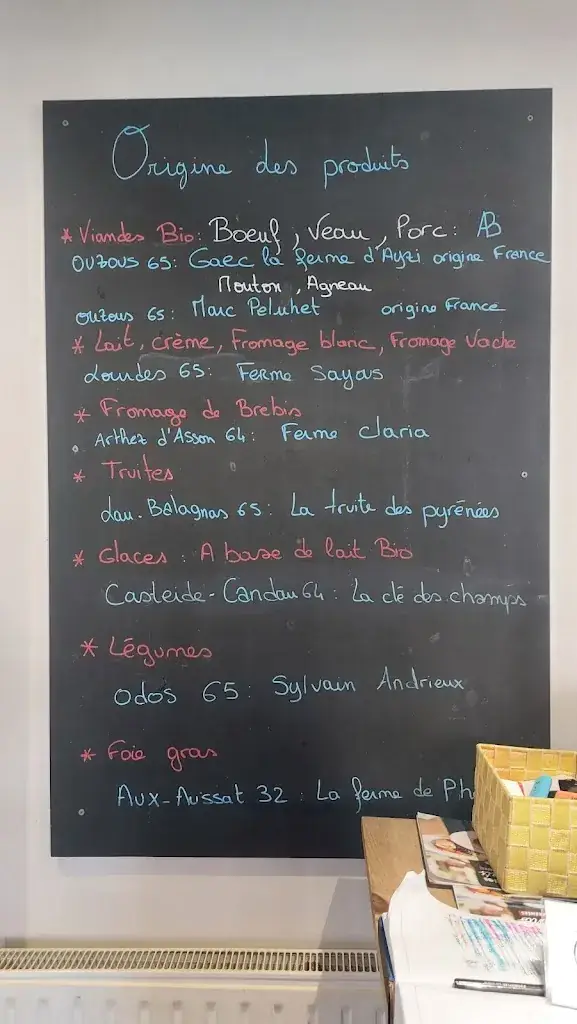 Origine des produits
* Viandes Bio: Boeuf, Veau, Porc: AB
OUZOUS 65: Gaec la ferme d'Ayzi origine France
Mouton, Agneau
Ouzous 65: Marc Peluhet origine France
* Lait, crème, Fromage blanc, Fromage Vache
Lourdes 65: Ferme Sayous
* Fromage de Brebis
Arthez d'Asson 64: Ferme Claria
* Truites
Lau-Balagnas 65: La truite des pyrénées
* Glaces: A base de lait Bio
Casteide-Candau 64: La clé des champs
* Légumes
Odos 65: Sylvain Andrieux
* Foie gras
Aux-Aussat 32: La ferme de